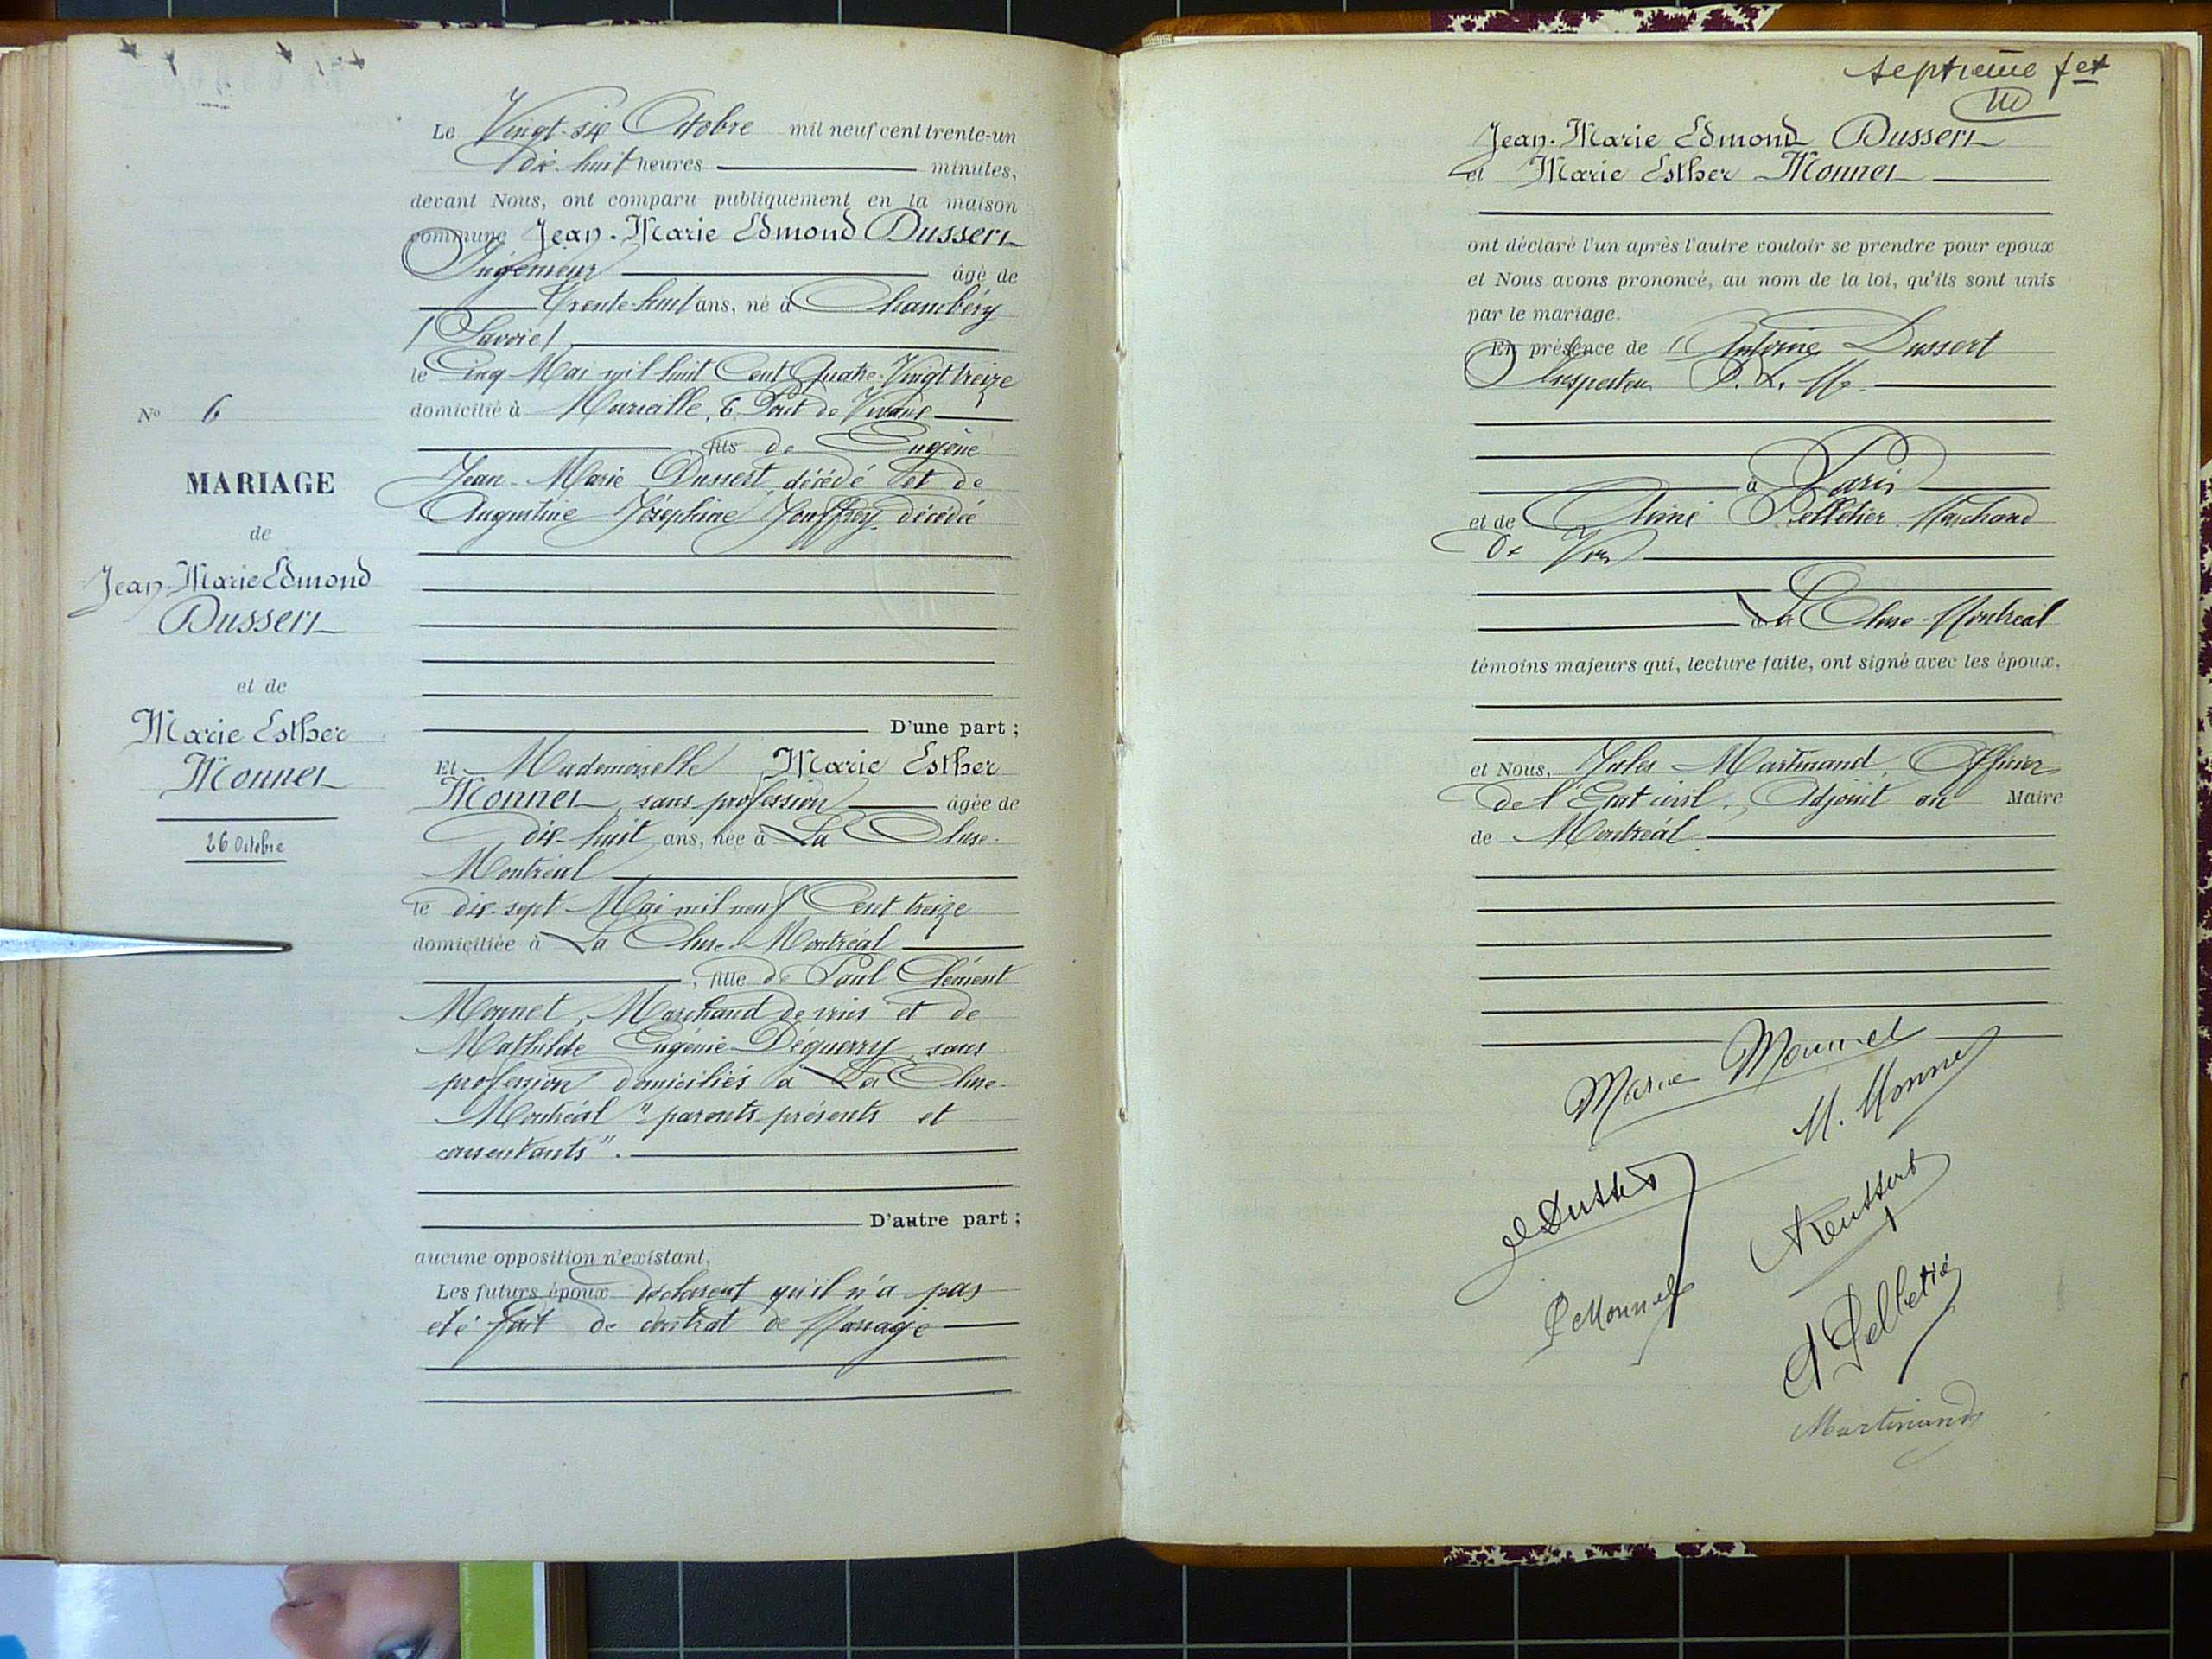 Le Vingt-six Octobre mil neuf cent trente-un
dix-huit heures minutes,
devant Nous, ont comparu publiquement en la maison
commune Jean-Marie Edmond Dussert
Ingénieur âgé de
trente-huit ans, né à Chambéry
/Savoie/
le Cinq Mai mil huit Cent Quatre-Vingt treize
domicilié à Marseille, 6 de
fils de Eugène
Jean-Marie Dussert, décédé et de
Augustine Joséphine Jouffrey, décédée
N° 6
MARIAGE
de
Jean-Marie Edmond
Dussert
et de
Marie Esther
Monnet
26 Octobre
D'une part ;
Et Mademoiselle Marie Esther
Monnet, sans profession âgée de
dix-huit ans, née à La Cluse-
Montréal
le dix-sept Mai mil neuf Cent treize
domiciliée à La Cluse-Montréal
, fille de Paul Clément
Monnet, Marchand de vins et de
Mathilde Eugénie Déguerry, sans
profession domiciliés à La Cluse-
Montréal "parents présents et
consentants".
D'autre part ;
aucune opposition n'existant,
Les futurs époux déclarent qu'il n'a pas
été fait de contrat de Mariage
septième fet
Jean-Marie Edmond Dussert
et Marie Esther Monnet
ont déclaré l'un après l'autre vouloir se prendre pour epoux
et Nous avons prononcé, au nom de la loi, qu'ils sont unis
par le mariage.
En présence de Antoine Dussert
Inspecteur P. L. M.
à Paris
et de Aimé Pelletier, Marchand
de
à La Cluse-Montréal
témoins majeurs qui, lecture faite, ont signé avec les époux,
et Nous, Jules Martinand, Officier
de l'Etat civil, Adjoint au Maire
de Montréal
Marie Monnet
M. Monnet
Dussert
P Monnet
A Pelletié
Martinand